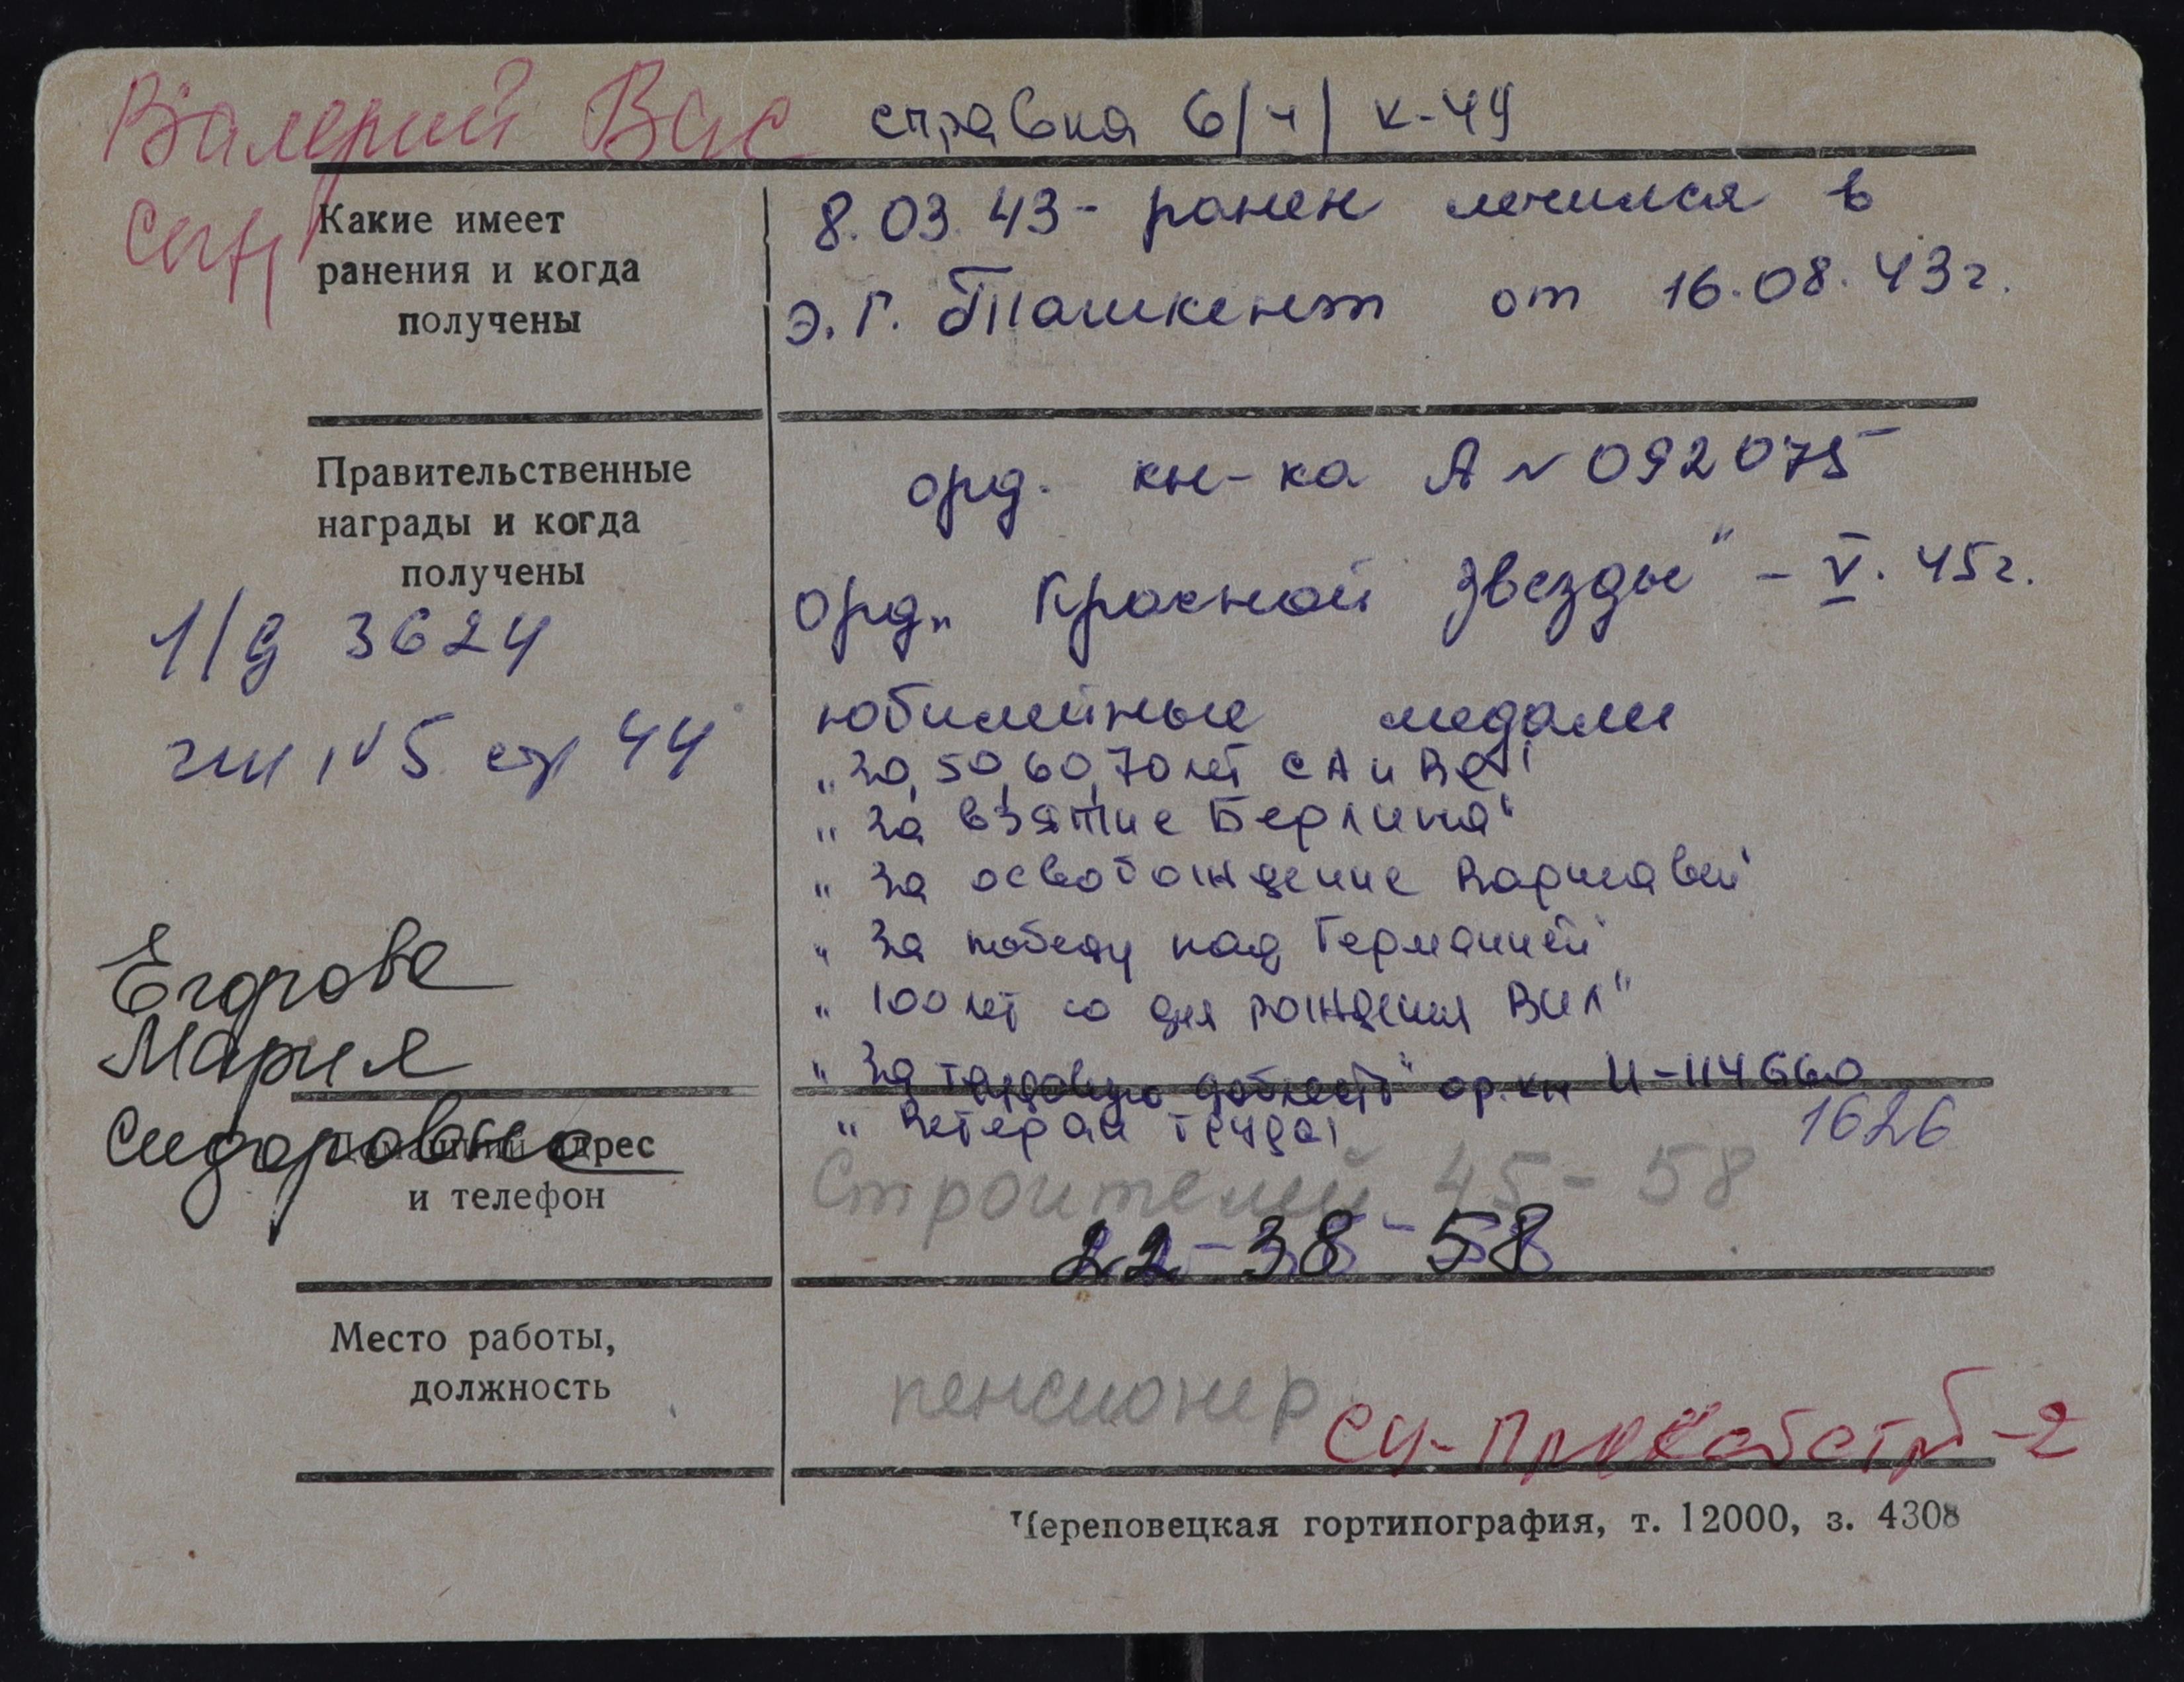 Валерий Вас справка в/ч/ к-49
Какие имеет
ранения и когда
получены
8.03.43- ранен лечился в
э.г. Ташкент от 16.08.43г.
Правительственные
награды и когда
получены
орд. кн-ка А № 092075
орд „Красной Звезды" - V. 45г.
л/д 3624
кн №5 стр 44
юбилейные медали
„20, 50, 60, 70 лет СА и ВФ"
„За взятие Берлина"
„За освобождение Варшавы"
„За победу над Германией"
„100 лет со дня рождения ВИЛ"
„За трудовую доблесть" ор.кн И-114660
„Ветеран труда"
1626
Егорова
Мария
Сидоровна
Домашний адрес
и телефон
Строителей 45-58
22-38-58
Место работы,
должность
пенсионер
СУ-
-2
Череповецкая гортипография, т. 12000, з. 4308